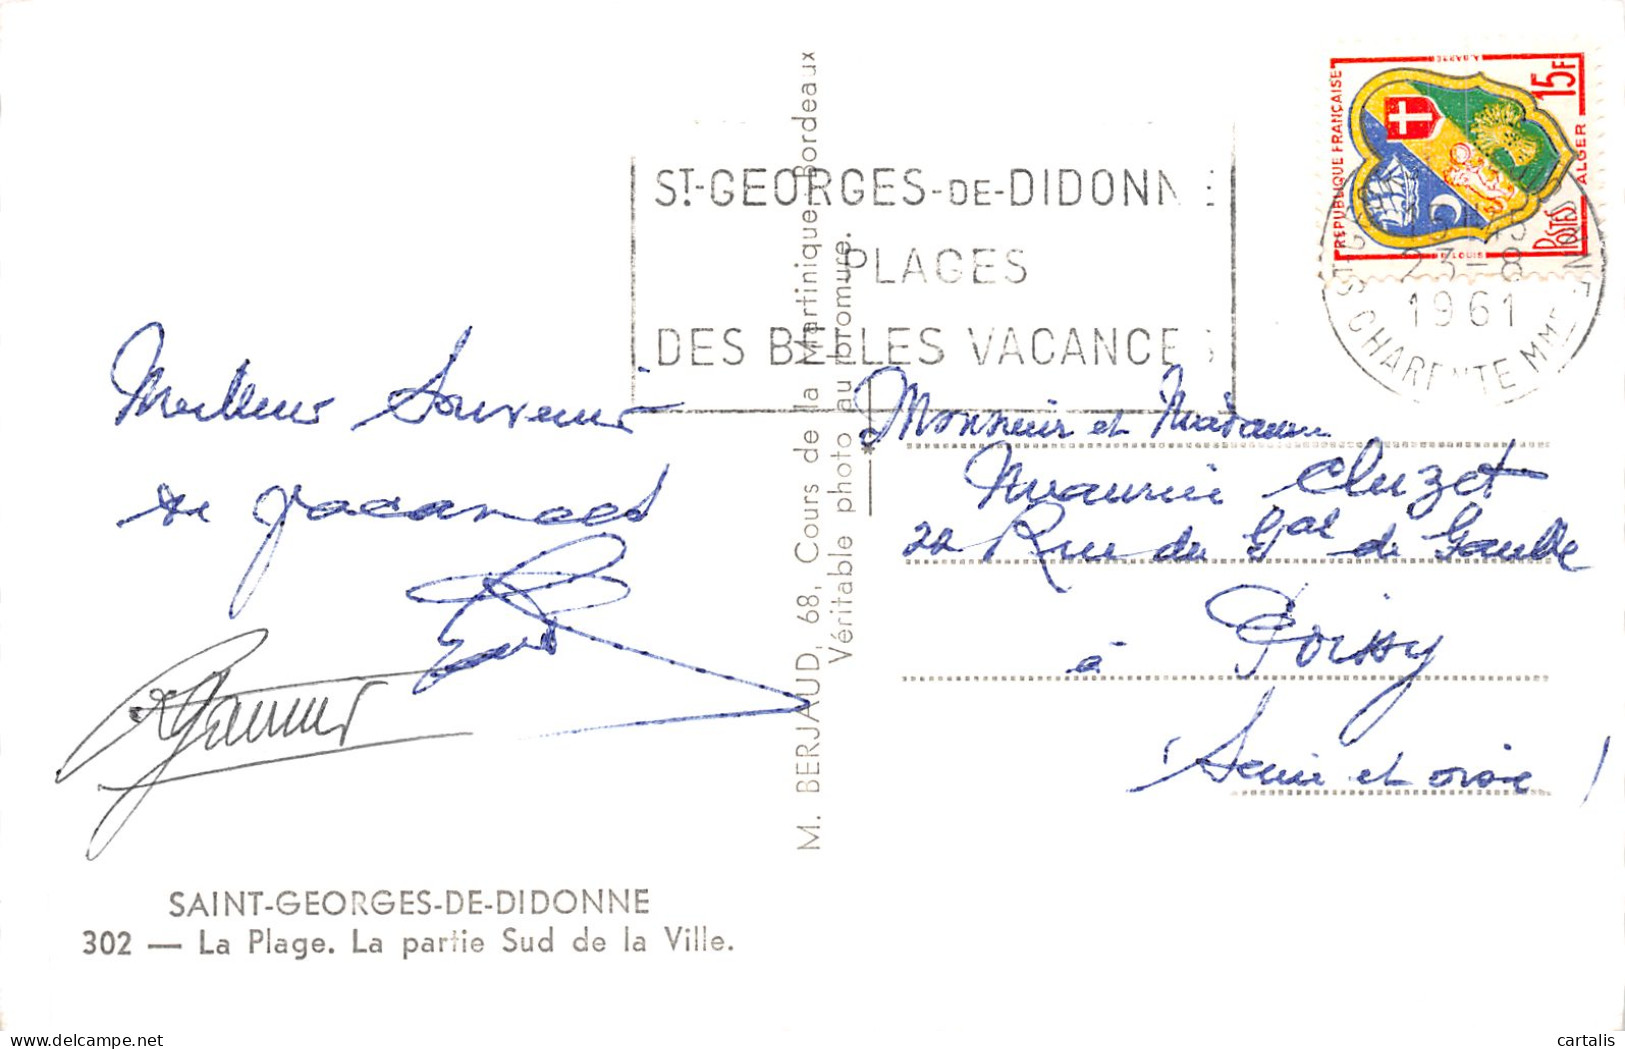 Meilleur Souvenir
de vacances
SAINT-GEORGES-DE-DIDONNE
302 — La Plage. La partie Sud de la Ville.
M. BERJAUD, 68, Cours de la Martinique - Bordeaux
Véritable photo au bromure.
ST-GEORGES-DE-DIDONNE
PLAGES
DES BELLES VACANCES
RÉPUBLIQUE FRANÇAISE
15F
ALGER
POSTES
23-8
1961
CHARENTE MME
Monsieur et Madame
Maurice Cluzet
22 Rue du Gal de Gaulle
à Poissy
(Seine et oise)
delcampe.net
cartalis